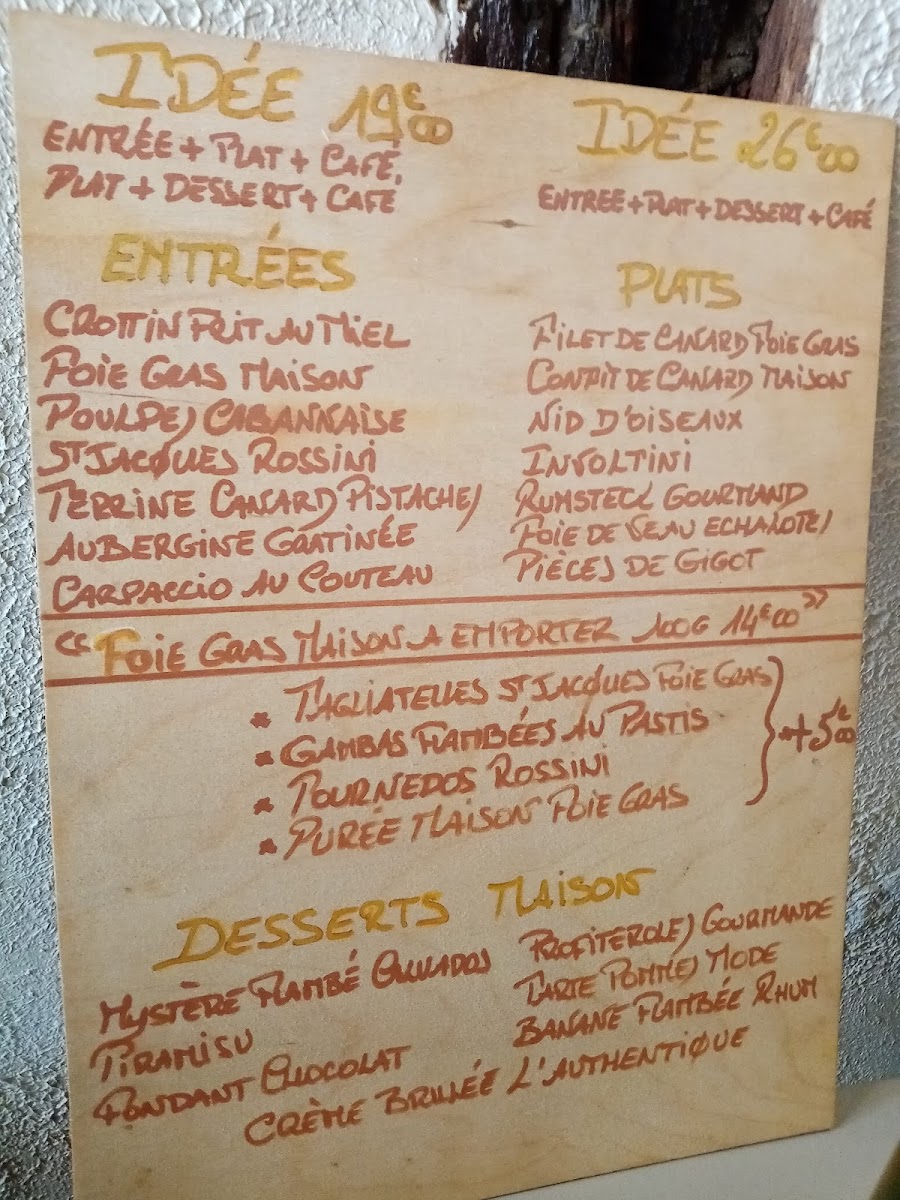 IDÉE 19€00
ENTRÉE + PLAT + CAFÉ,
PLAT + DESSERT + CAFÉ
IDÉE 26€00
ENTREE + PLAT + DESSERT + CAFÉ
ENTRÉES
CROTTIN FRIT AU MIEL
FOIE GRAS MAISON
POULPES CABANNAISE
ST JACQUES ROSSINI
TERRINE CANARD PISTACHES
AUBERGINE GRATINÉE
CARPACCIO AU COUTEAU
PLATS
FILET DE CANARD FOIE GRAS
CONFIT DE CANARD MAISON
NID D'OISEAUX
INVOLTINI
RUMSTECK GOURMAND
FOIE DE VEAU ECHALOTES
PIÈCES DE GIGOT
"FOIE GRAS MAISON A EMPORTER 100G 14€00"
* TAGLIATELLES ST JACQUES FOIE GRAS
* GAMBAS FLAMBÉES AU PASTIS
* TOURNEDOS ROSSINI
* PURÉE MAISON FOIE GRAS
+5€00
DESSERTS MAISON
MYSTÈRE FLAMBÉ
TIRAMISU
FONDANT CHOCOLAT
PROFITEROLES GOURMANDE
TARTE POMMES MODE
BANANE FLAMBÉE RHUM
CRÈME BRULÉE L'AUTHENTIQUE